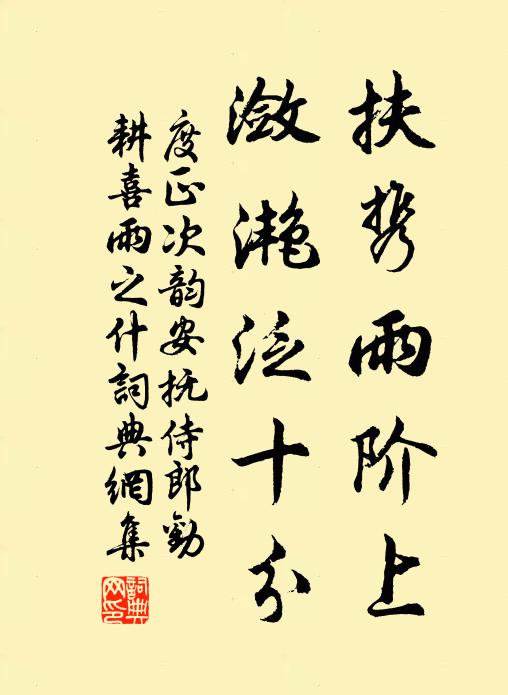 扶携雨阶上
潋滟泛十分
度正次韵安抚侍郎劝
耕喜雨之什詞典網集
詞典網印